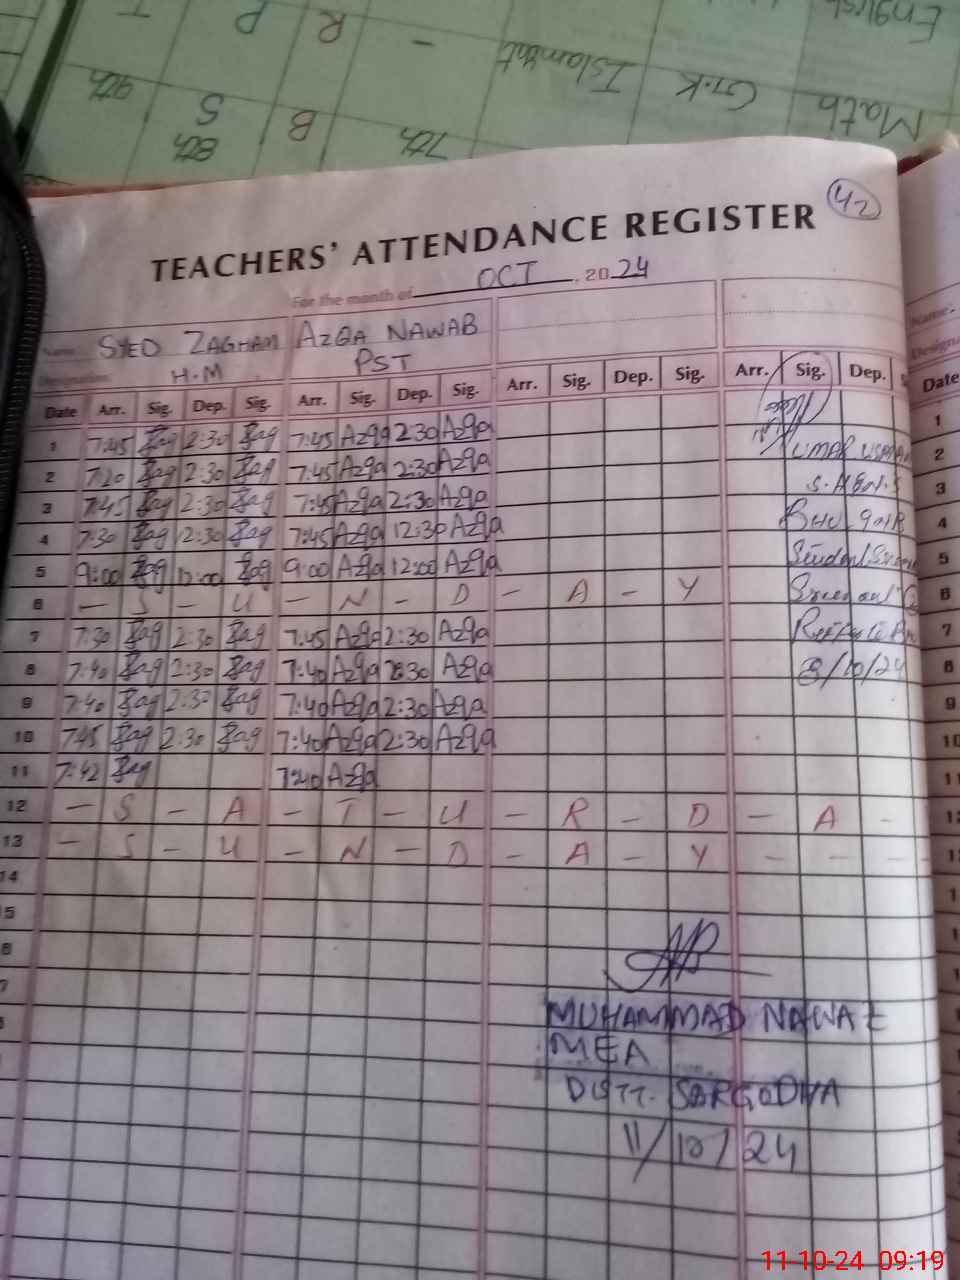 English
Math G.K Islamiat - R P T
7th B S
8th 9th
42
TEACHERS' ATTENDANCE REGISTER
For the month of OCT , 20 24
Name: SYED ZAGHAM AZQA NAWAB
Designation H.M PST
Date Arr. Sig. Dep. Sig. Arr. Sig. Dep. Sig. Arr. Sig. Dep. Sig. Arr. Sig. Dep.
1 7:45 Zag 2:30 Zag 7:45 Azqa 2:30 Azqa
2 7:20 Zag 2:30 Zag 7:45 Azqa 2:30 Azqa UMAR
3 7:45 Zag 2:30 Zag 7:45 Azqa 2:30 Azqa
4 7:30 Zag 12:30 Zag 7:45 Azqa 12:30 Azqa BHU
5 9:00 Zag 12:00 Zag 9:00 Azqa 12:00 Azqa Student
6 - S - U - N - D - A - Y
7 7:30 Zag 2:30 Zag 7:45 Azqa 2:30 Azqa
8 7:40 Zag 2:30 Zag 7:40 Azqa 2:30 Azqa 8/10/24
9 7:40 Zag 2:30 Zag 7:40 Azqa 2:30 Azqa
10 7:45 Zag 2:30 Zag 7:40 Azqa 2:30 Azqa
11 7:42 Zag 7:40 Azqa
12 - S - A - T - U - R - D - A -
13 - S - U - N - D - A - Y - - -
14
MUHAMMAD NAWAZ
MEA
DISTT. SARGODHA
11/10/24
Name:
Date
1
2
3
4
5
6
7
8
9
10
11
11-10-24 09:19